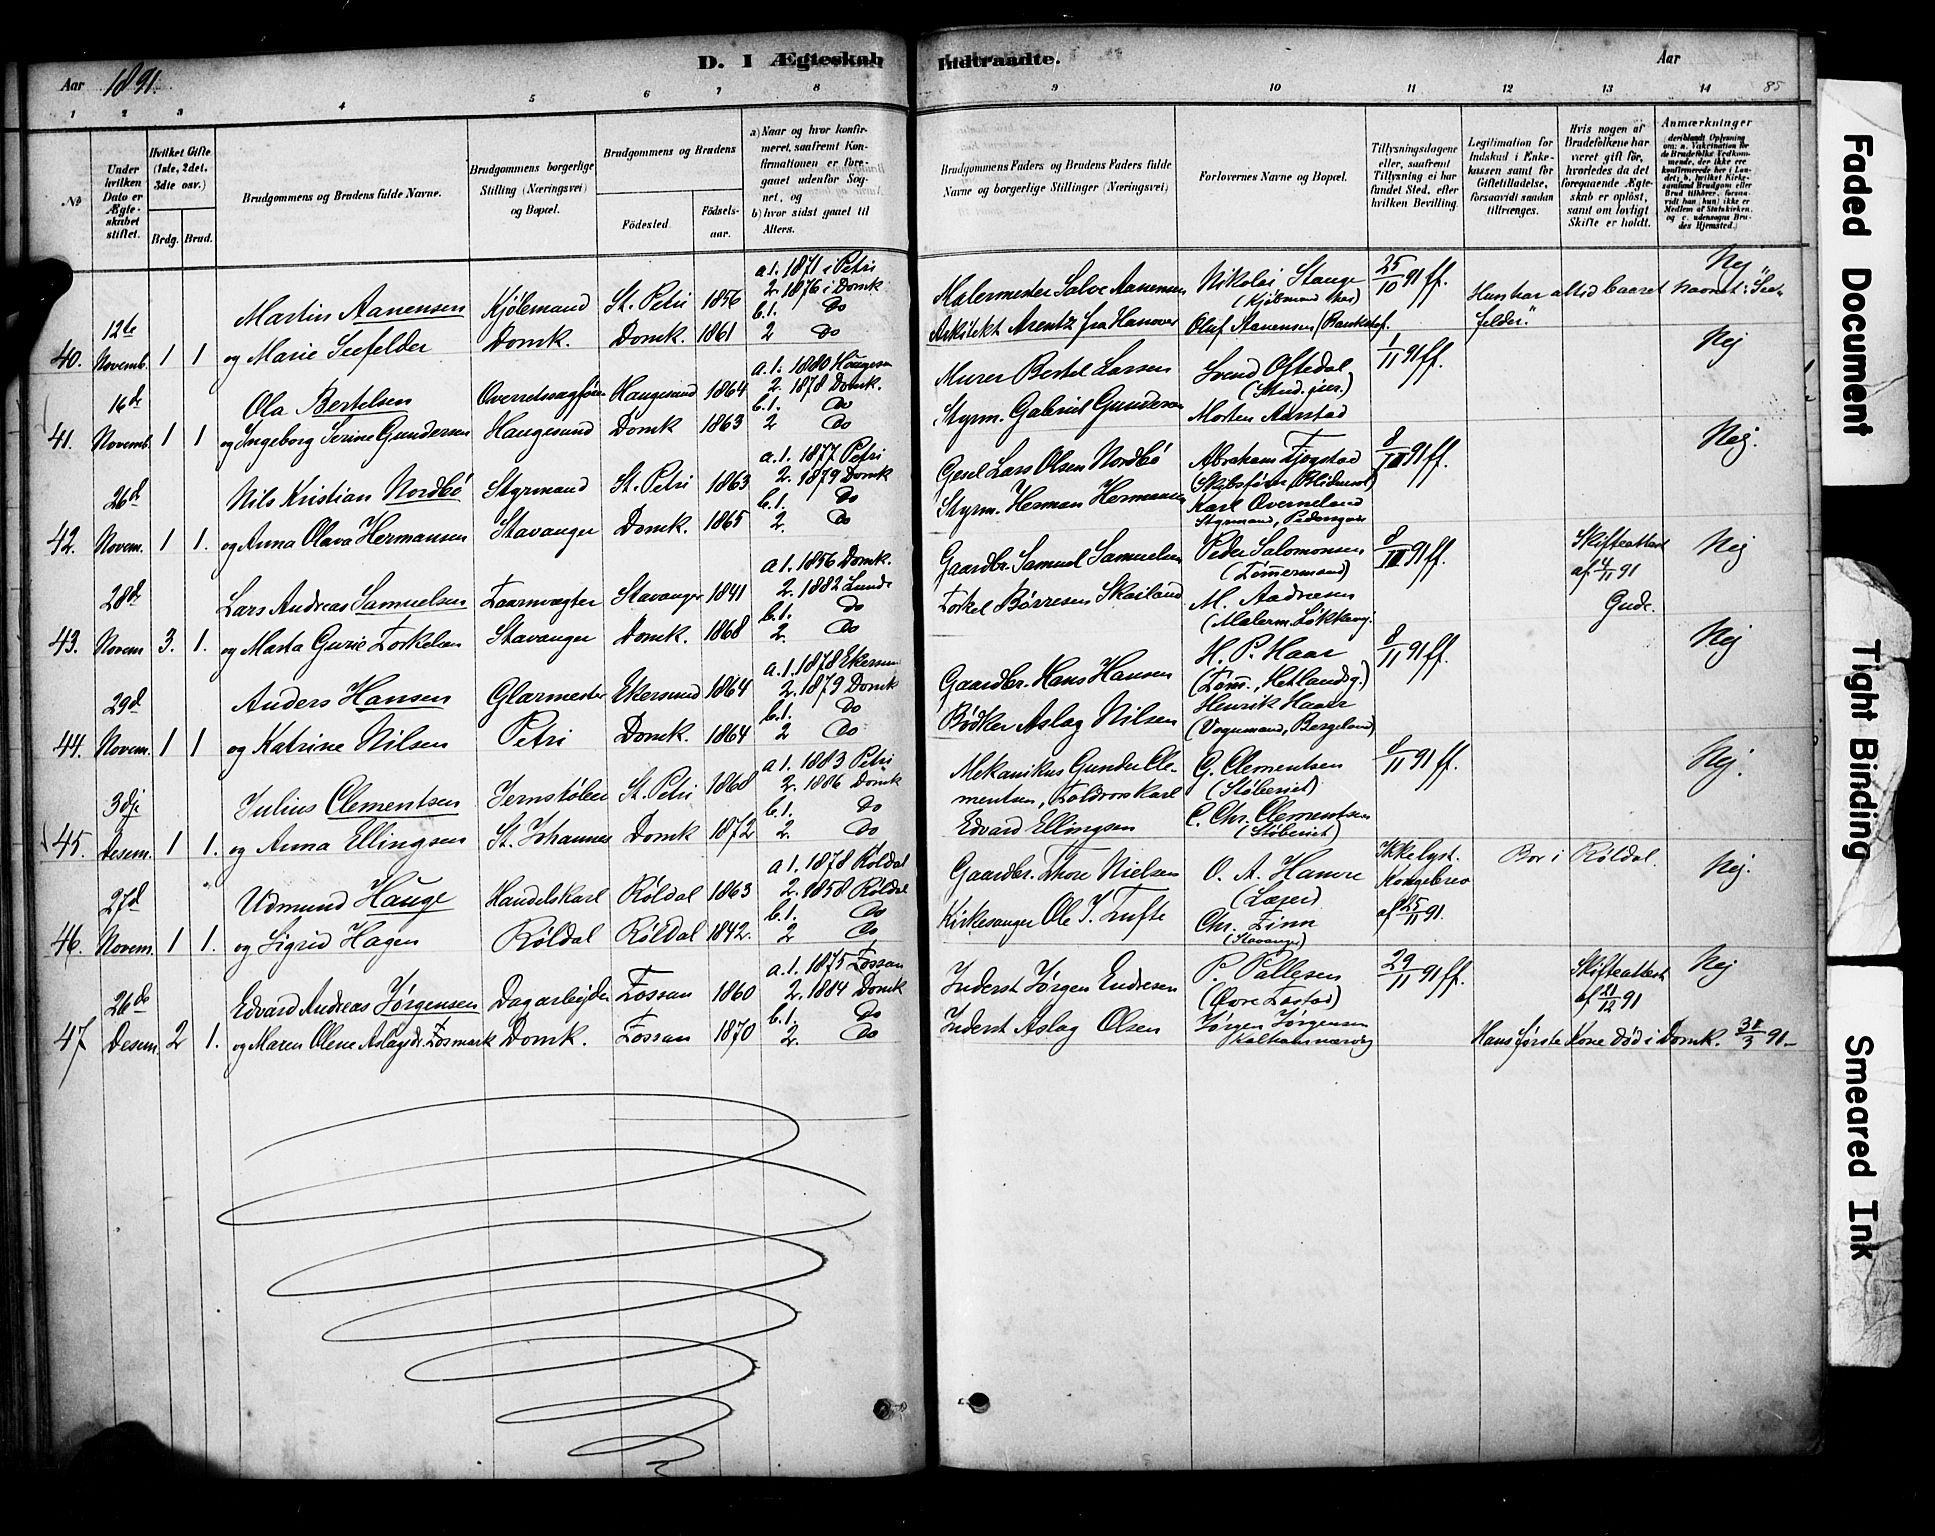 Aar 1891.
D. I Ægteskab Indtraadte.
Aar
85
1 2 3 4 5 6 7 8 9 10 11 12 13 14
No
Under hvilken Dato er Ægteskabet stiftet.
Hvilket Gifte (1ste, 2det, 3die osv.)
Brdg. Brud.
Brudgommens og Brudens fulde Navne.
Brudgommens borgerlige Stilling (Næringsvei) og Bopæl.
Brudgommens og Brudens
Födested.
Födselsaar.
a) Naar og hvor konfirmeret, saafremt Konfirmationen er foregaaet udenfor Sognet, og
b) hvor sidst gaaet til Alters.
Brudgommens Faders og Brudens Faders fulde Navne og borgerlige Stillinger (Næringsvei)
Forlovernes Navne og Bopæl.
Tillysningsdagene eller, saafremt Tillysning ei har fundet Sted, efter hvilken Bevilling.
Legitimation for Indskud i Enkekassen samt for Giftetilladelse, forsaavidt saadan tiltrænges.
Hvis nogen af Brudefolkene har været gift för, hvorledes da det foregaaende Ægteskab er oplöst, samt om lovligt Skifte er holdt.
Anmærkninger
40. 12te Novemb. 1 1
Martin Aanensen
og Marie Seefelder
Kjöbmand
Domk.
St. Petri 1856
Domk. 1861
a. 1. 1871 i Petri
2. 1876 i Domk
b. 1. Do
2 Do
Malermester Salve Aanensen
Arkitekt Arentz fra Hanover
Nikolai Stange
25/10 91 ff.
Nej
Hun har altid baaret Navnet: "Seefelder."
41. 16de Novemb. 1 1
Ola Bertelsen
og Ingeborg Serine Gundersen
Haugesund
Haugesund 1864
Domk 1863
a. 1. 1880 Haugesun
2. 1878 Domk.
b. 1. Do
2 Do
Murer Bertel Larsen
Styrm. Gabriel Gundersen
Svend Oftedal
(Stud. jur.)
Morten Aarstad
1/11 91 ff.
Nej
42. 26d Novem. 1 1.
Nils Kristian Nordbö
og Anna Olava Hermansen
Styrmand
Stavanger
St. Petri 1863
Domk. 1865
a. 1. 1877 Petri
2. 1879 Domk
b. 1. Do
2. Do
Lars Olsen Nordbö
Styrm. Herman Hermansen
Abraham Fjogstad
Karl Overneland
8/11 91 ff.
Nej.
43. 28d Novem 3. 1.
Lars Andreas Samuelsen
og Marta Gurie Torkelsen
Taarnvægter
Stavanger
Stavanger 1841
Domk. 1868
a 1. 1856 Domk.
2. 1882 Lunde
b. 1. Do
2. Do
Gaardbr. Samuel Samuelsen
Torkel Börresen Skailand
Peder Salomonsen
(Tömmermand)
M. Aadnesen
8/11 91 ff.
Skifteattest
af 4/11 91
Gude.
Nej
44. 29d Novem. 1 1
Anders Hansen
og Katrine Nilsen
Glarmester
Petri
Ekersund 1864
Domk. 1864
a. 1. 1878 Ekersun
2. 1879 Domk
b. 1. Do
2 Do
Gaardbr. Hans Hansen
Bödker Aslag Nilsen
H. P. Haar
(Töm., Hetlandsg.)
Henrik Haar
(Vognmand, Bergeland)
8/11 91 ff.
Nej
45. 3dje Desem. 1 1.
Julius Clementsen
og Anna Ellingsen
Jernstöber
St. Johannes
St. Petri 1868
Domk 1872
a 1. 1883 Petri
2. 1886 Domk
b. 1. Do
2. Do
Mekanikus Gunder Clementsen, Toldroerskarl
Edvard Ellingsen
G. Clementsen
(Stöberiet)
C. Chr. Clementsen
(Stöberiet)
8/11 91 ff.
Nej.
46. 27d Novem. 1 1.
Udmund Hauge
og Sigrid Hagen
Handelskarl
Röldal
Röldal 1863
Röldal 1842.
a 1. 1878 Röldal
2. 1858 Röldal
b. 1. Do
2 Do
Gaardbr. Thore Nielsen
Kirkesanger Ole J. Tufte
O. A. Hamre
Chr. Finn
(Stavanger)
Ikke lyst.
Kongebrev
af 25/11 91.
Bor i Röldal.
Nej.
47 26de Desem. 2 1.
Edvard Andreas Jörgensen
og Maren Olene Aslagsdr. Fosmark
Dagarbejder
Domk.
Fossan 1860
Fossan 1870
a. 1. 1875 Fossan
2. 1884 Domk
b. 1. Do
2. Do
Inderst Jörgen Endresen
Inderst Aslag Olsen
P. Pallesen
Jörgen Jörgensen
29/11 91 ff.
Skifteattest
af 21/12 91
Nej
Hans förste Kone död i Domk. 31/3 91.
Faded Document
Tight Binding
Smeared Ink